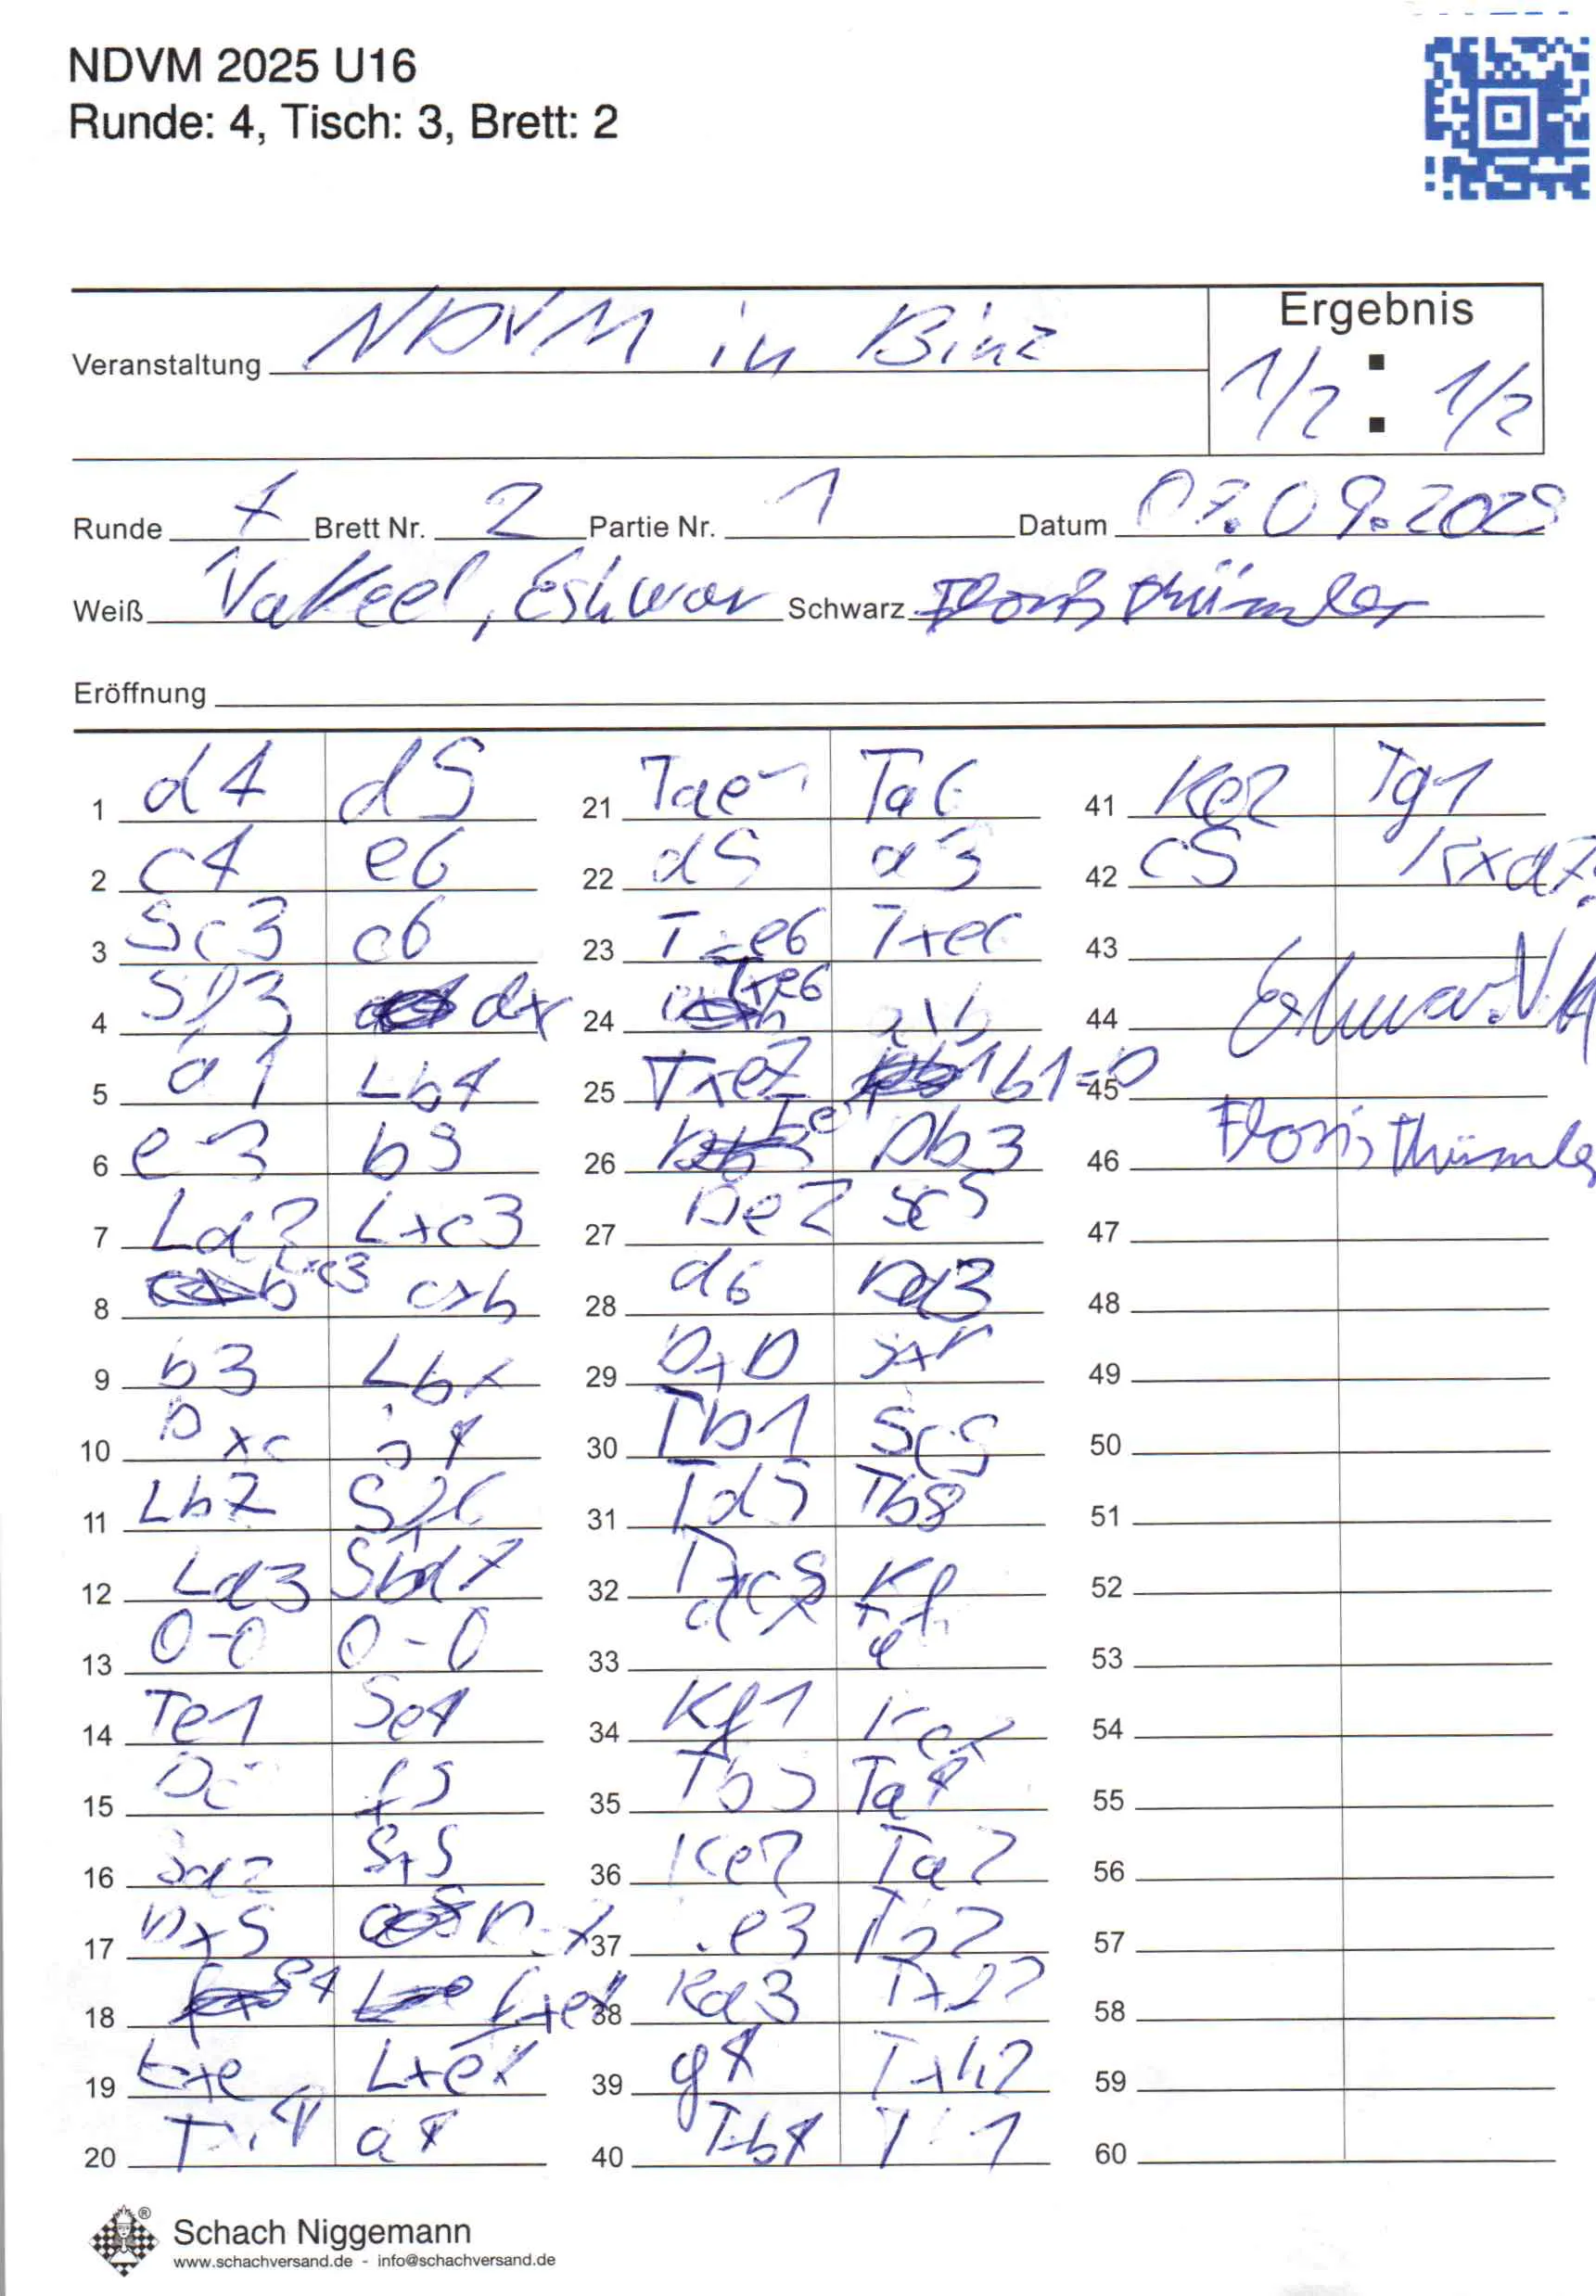 NDVM 2025 U16
Runde: 4, Tisch: 3, Brett: 2
Veranstaltung NDVM in Binz
Ergebnis
1/2 : 1/2
Runde 4 Brett Nr. 2 Partie Nr. 1 Datum 07.09.2025
Weiß Vakeel, Eshwar Schwarz Floris Thümler
Eröffnung
1 d4 d5
2 c4 e6
3 Sc3 c6
4 Sf3 dx
5 a4 Lb4
6 e3 b5
7 Ld2 Lxc3
8 Lxc3 cxb
9 b3 Lb7
10 bxc b4
11 Lb2 Sf6
12 Ld3 Sbd7
13 0-0 0-0
14 Te1 Se4
15 Dc f5
16 Sd2
17
18 fxe4
19 Lxe Lxe4
20 a4
21 Tae1 Ta6
22 d5 a3
23 Txe6 Txe6
24 Txe6 axb
25 Txe7 b1=D
26 Te1 Db3
27 De2 Sc5
28 d6 Dd3
29 DxD SxD
30 Tb1 Sc5
31 Td5 Tb8
32 Txc5 Kf
33
34 Kf1 Ke
35 Tb5 Ta4
36 Ke2 Ta2
37 e3
38 Kd3
39 g4 Txh2
40 Tb4
41 Ke2 Tg1
42 c5 Kxd7
43
44 Eshwar.V.A
45
46 Floris Thümler
47
48
49
50
51
52
53
54
55
56
57
58
59
60
Schach Niggemann
www.schachversand.de - info@schachversand.de